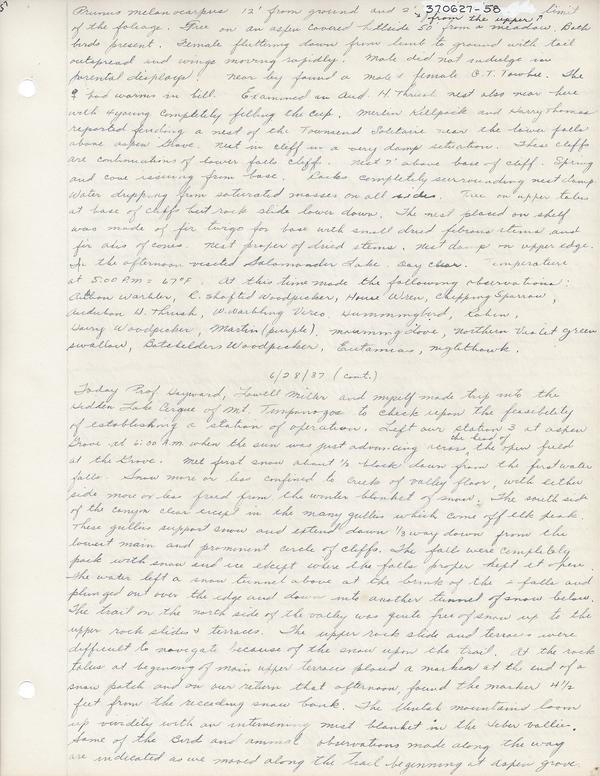 5
370627-58
Prunus melanocarpus 12' from ground and 2' from the upper limit
of the foliage. Tree on an aspen covered hillside 50' from a meadow. Both
birds present. Female fluttering down from limb to ground with tail
outspread and wings moving rapidly. Male did not indulge in
parental displays. Near by found a male & female G.T. Towhee. The
♀ had worms in bill. Examined an Aud. H. Thrush nest also near here
with 4 young completely filling the cup. Merlin Killpack and Harry Thomas
reported finding a nest of the Townsend Solitaire near the lower falls
above aspen Grove. Nest in cliff in a very damp situation. These cliffs
are continuations of lower falls cliff. Nest 7' above base of cliff. Spring
and cave issuing from base. Rocks completely surrounding nest damp.
Water dripping from saturated mosses on all sides. Tree on upper talus
at base of cliffs but rock slide lower down. The nest placed on shelf
was made of fir twigs for base with small dried fibrous stems and
fir axis of cones. Nest proper of dried stems. Nest damp on upper edge.
In the afternoon visited Salamander Lake. Day clear. Temperature
at 5:00 P.M. = 67°F. At this time made the following observations:
Audubon Warbler, R. Shafted Woodpecker, House Wren, Chipping Sparrow,
Audubon H. Thrush, W. Warbling Vireo, Hummingbird, Robin,
Hairy Woodpecker, Martin (purple), mourning dove, Northern Violet green
swallow, Batchelders Woodpecker, Eutamias, nighthawk.
6/28/37 (cont.)
Today Prof. Hayward, Lowell Miller and myself made trip into the
Hidden Lake Cirque of Mt. Timpanogos to check upon the feasibility
of establishing a station of operation. Left our station 3 at aspen
Grove at 6:00 A.M. when the sun was just advancing across the head of the open field
at the Grove. Met first snow about 1/2 block down from the first water
falls. Snow more or less confined to creeks of valley floor, with either
side more or less freed from the winter blanket of snow. The south side
of the canyon clear except in the many gullies which come off elk peak.
These gullies support snow and extend down 1/3 way down from the
lowest main and prominent circle of cliffs. The fall were completely
pack with snow and ice except where the falls proper kept it open.
The water left a snow tunnel above at the brink of the falls and
plunged out over the edge and down into another tunnel of snow below.
The trail on the north side of the valley was quite free of snow up to the
upper rock slides & terraces. The upper rock slide and terraces were
difficult to navigate because of the snow upon the trail. At the rock
talus at beginning of main upper terraces placed a marker at the end of a
snow patch and on our return that afternoon, found the marker 4 1/2
feet from the receding snow bank. The Uintah mountains loom
up vividly with an intervening mist blanket in the Heber valley.
Some of the Bird and animal observations made along the way
are indicated as we moved along the trail beginning at aspen grove.